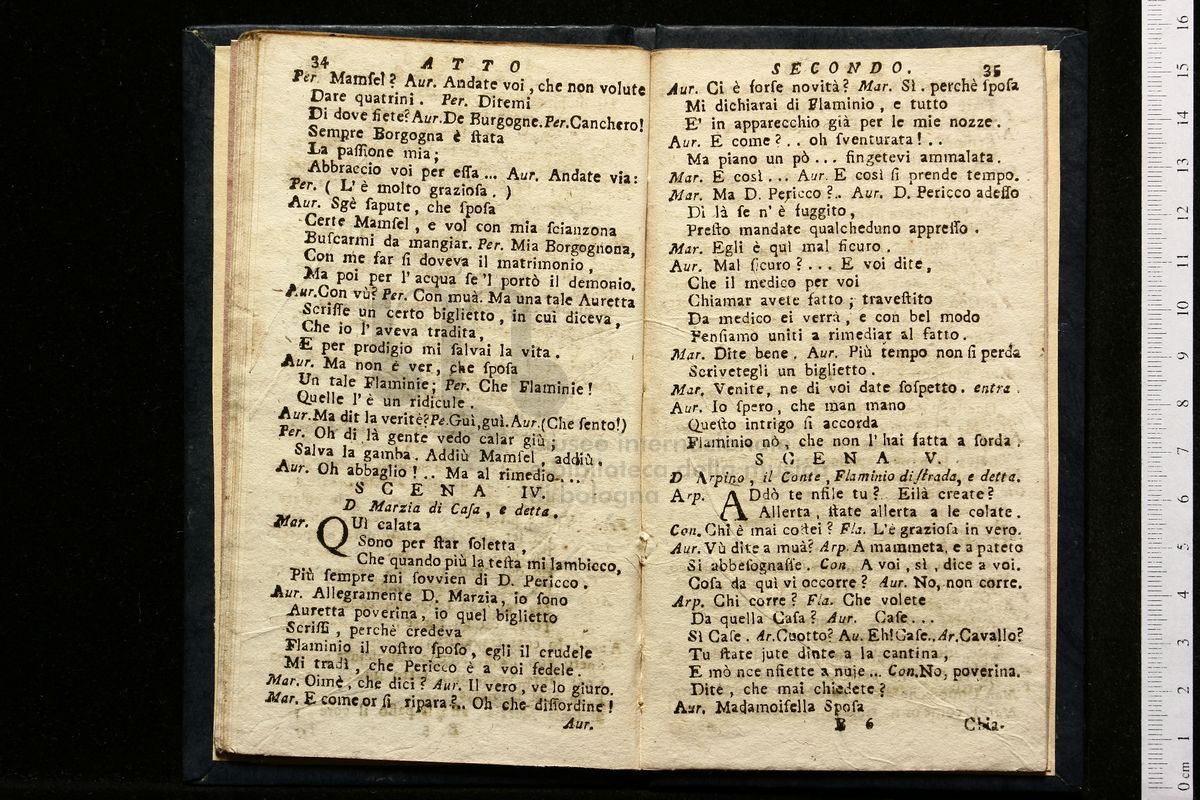 34 ATTO
Per. Mamſel? Aur. Andate voi, che non volute
Dare quatrini. Per. Ditemi
Di dove ſiete? Aur. De Burgogne. Per. Canchero!
Sempre Borgogna è ſtata
La paſſione mia;
Abbraccio voi per eſſa ... Aur. Andate via:
Per. ( L' è molto grazioſa. )
Aur. Sgè ſapute, che ſpoſa
Certe Mamſel, e vol con mia ſcianzona
Buſcarmi da mangiar. Per. Mia Borgognona,
Con me far ſi doveva il matrimonio,
Ma poi per l' acqua ſe 'l portò il demonio.
Aur. Con vù? Per. Con muà. Ma una tale Auretta
Scriſſe un certo biglietto, in cui diceva,
Che io l' aveva tradita,
E per prodigio mi ſalvai la vita.
Aur. Ma non è ver, che ſpoſa
Un tale Flaminie; Per. Che Flaminie!
Quelle l' è un ridicule.
Aur. Ma dit la veritè? Pe. Guì, guì. Aur. (Che ſento!)
Per. Oh di là gente vedo calar giù;
Salva la gamba. Addiù Mamſel, addiù.
Aur. Oh abbaglio! .. Ma al rimedio....
SCENA IV.
D Marzia di Caſa, e detta.
Mar. QUì calata
Sono per ſtar ſoletta,
Che quando più la teſta mi lambicco,
Più ſempre mi ſovvien di D. Pericco.
Aur. Allegramente D. Marzia, io ſono
Auretta poverina, io quel biglietto
Scriſſi, perchè credeva
Flaminio il voſtro ſpoſo, egli il crudele
Mi tradì, che Pericco è a voi fedele.
Mar. Oimè, che dici? Aur. Il vero, ve lo giuro.
Mar. E come or ſi ripara?.. Oh che diſſordine!
Aur.
SECONDO. 35
Aur. Ci è forſe novità? Mar. Sì. perchè ſpoſa
Mi dichiarai di Flaminio, e tutto
E' in apparecchio già per le mie nozze.
Aur. E come? .. oh ſventurata! ..
Ma piano un pò ... fingetevi ammalata.
Mar. E così ... Aur. E così ſi prende tempo.
Mar. Ma D. Pericco?.. Aur. D. Pericco adeſſo
Di là ſe n' è fuggito,
Preſto mandate qualcheduno appreſſo.
Mar. Egli è quì mal ſicuro.
Aur. Mal ſicuro? ... E voi dite,
Che il medico per voi
Chiamar avete fatto; traveſtito
Da medico ei verrà, e con bel modo
Penſiamo uniti a rimediar al fatto.
Mar. Dite bene. Aur. Più tempo non ſi perda
Scrivetegli un biglietto.
Mar. Venite, ne di voi date ſoſpetto. entra.
Aur. Io ſpero, che man mano
Queſto intrigo ſi accorda
Flaminio nò, che non l' hai fatta a ſorda.
SCENA V.
D Arpino, il Conte, Flaminio di ſtrada, e detta.
Arp. ADdò te nfile tu? Eilà create?
Allerta, ſtate allerta a le colate.
Con. Chi è mai coſtei? Fla. L'è grazioſa in vero.
Aur. Vù dite a muà? Arp. A mammeta, e a pateto
Si abbeſognaſſe. Con. A voi, sì, dice a voi.
Coſa da quì vi occorre? Aur. No, non corre.
Arp. Chi corre? Fla. Che volete
Da quella Caſa? Aur. Caſe...
Sì Caſe. Ar. Cuotto? Au. Eh! Caſe.. Ar. Cavallo?
Tu ſtate jute dinte a la cantina,
E mò nce nfiette a nuje .. Con. No, poverina.
Dite, che mai chiedete?
Aur. Madamoiſella Spoſa
B 6 Chia-